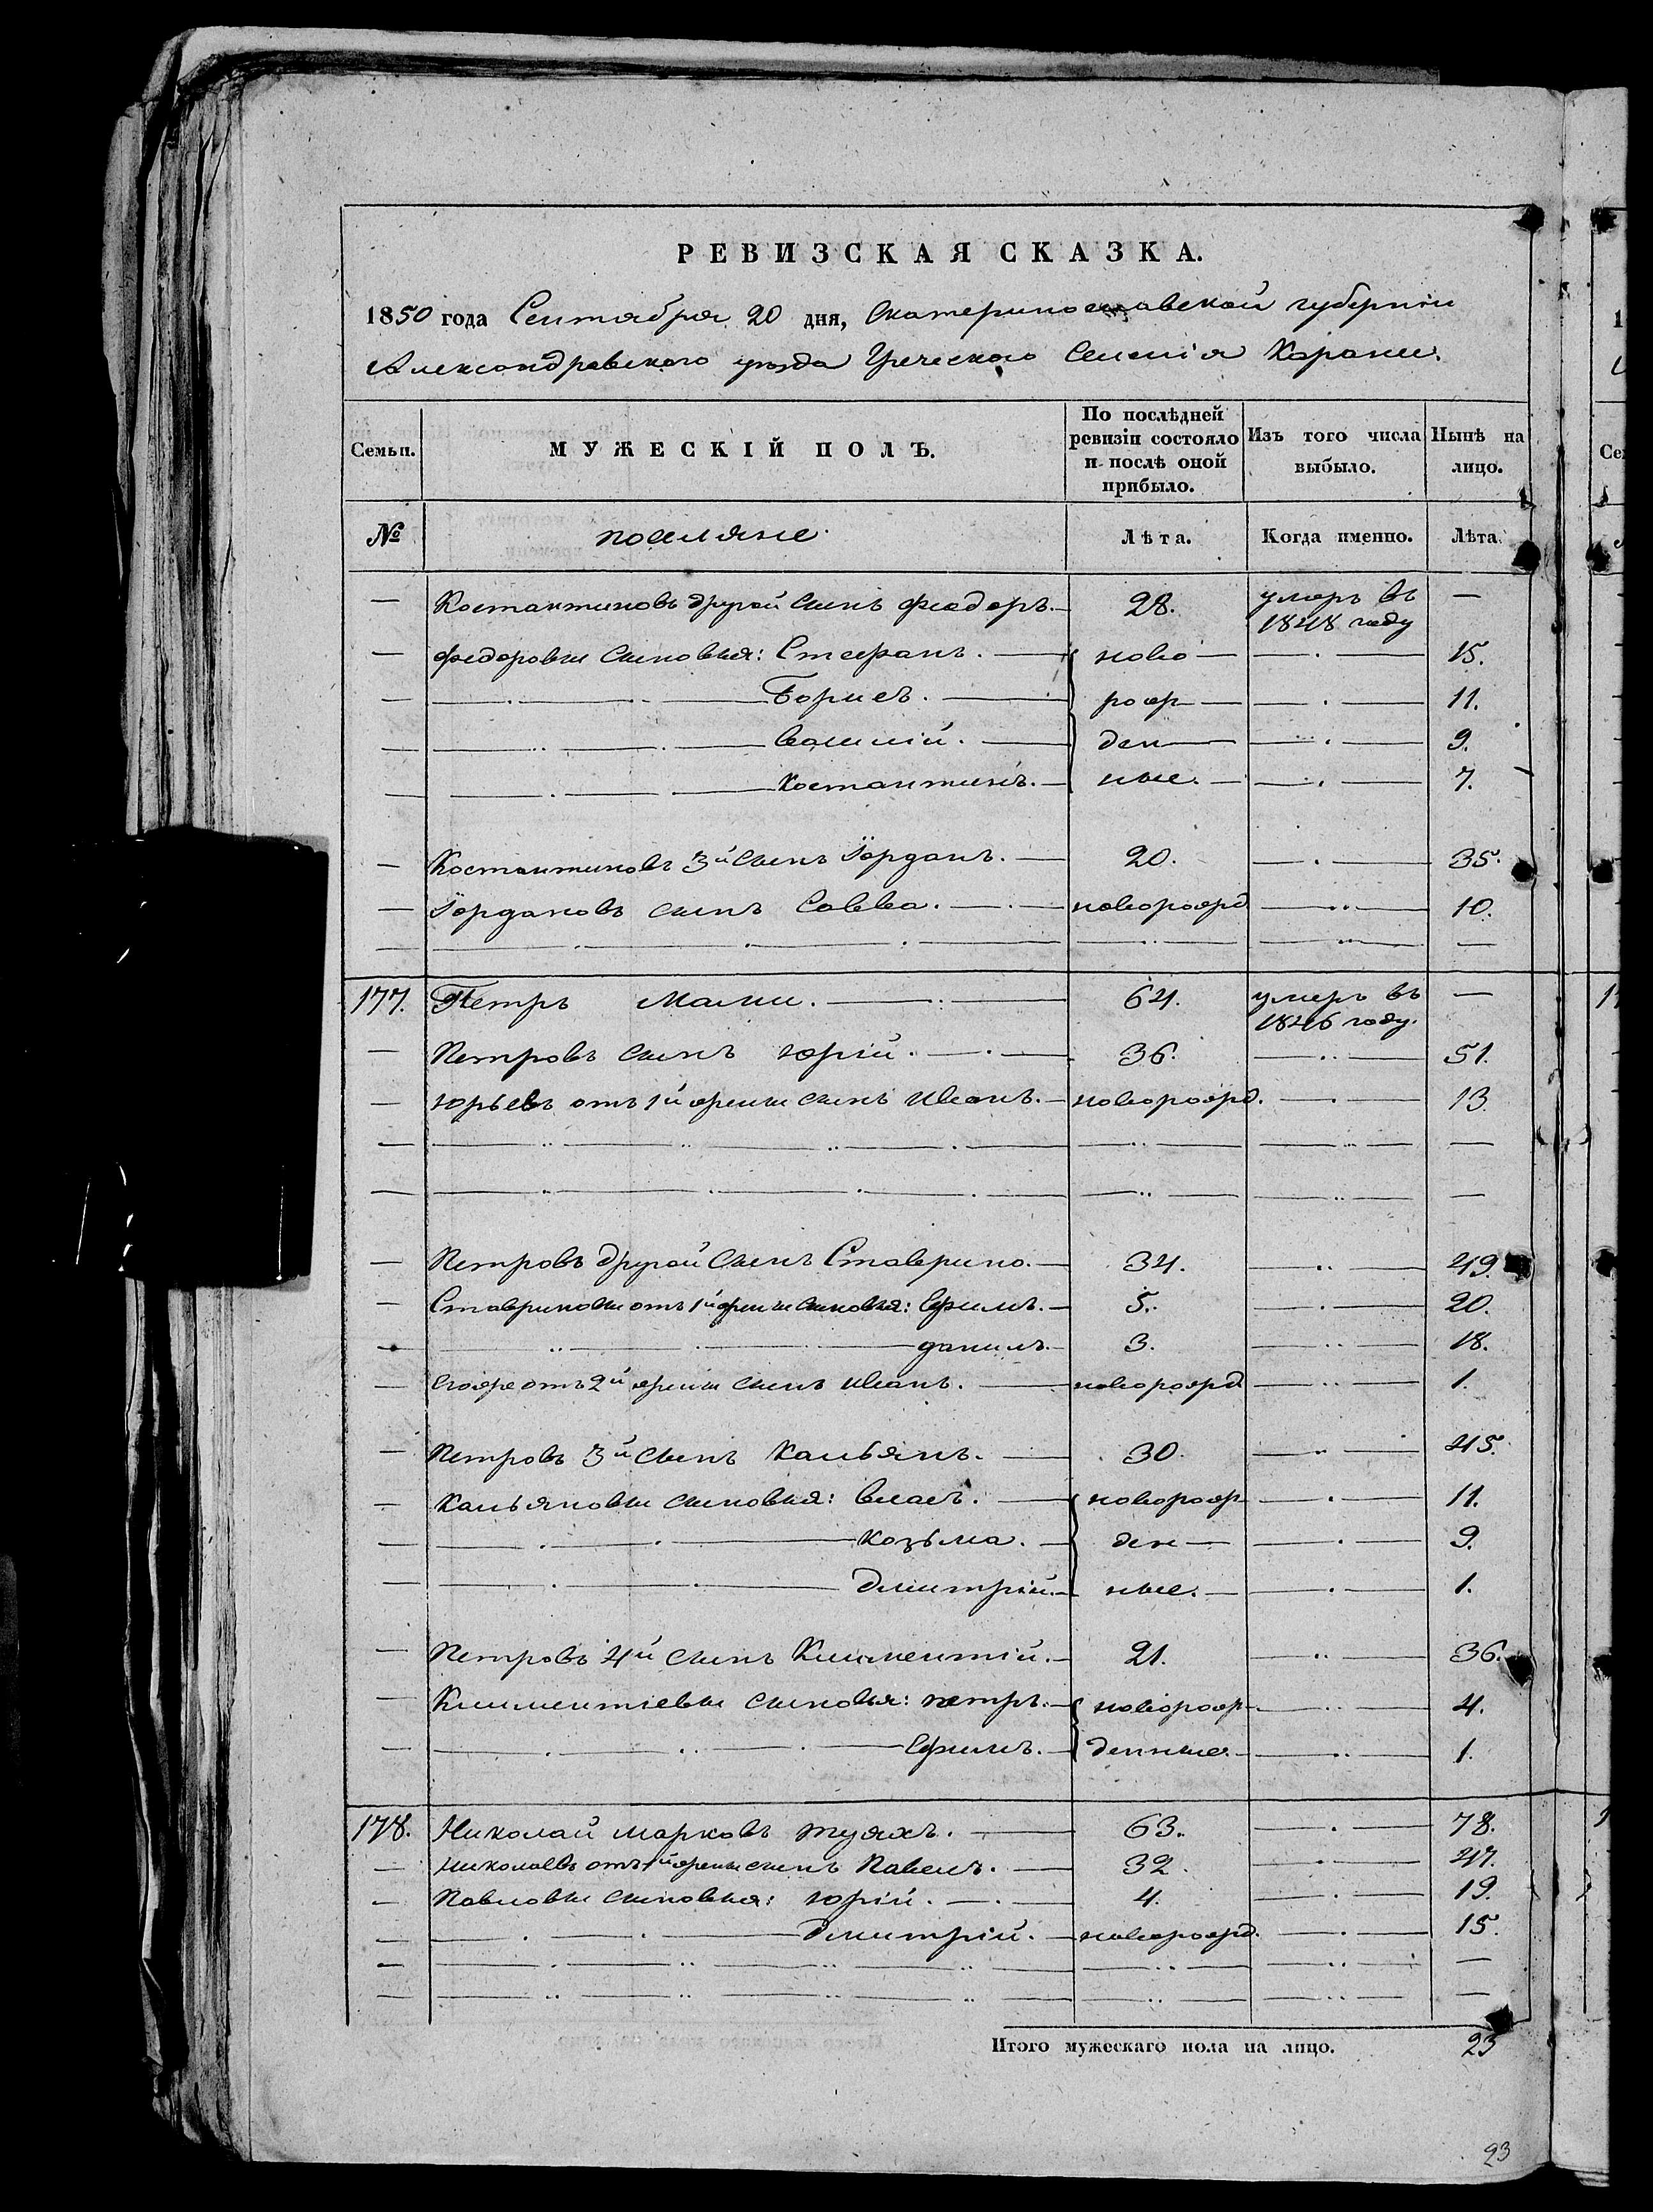 РЕВИЗСКАЯ СКАЗКА.
1850 года Сентября 20 дня, Екатеринославской губернии
Александровского уезда Греческого Селенія Карани.
Семьи. МУЖЕСКІЙ ПОЛЪ. По послѣдней ревизіи состояло и послѣ оной прибыло. Изъ того числа выбыло. Нынѣ на лицо.
№ поселяне. Лѣта. Когда именно. Лѣта.
— Костантиновъ другой сынъ Федоръ. — 28. умеръ въ 1848 году —
— Федоровы сыновья: Стефанъ. — ново — — . — 15.
— Борисъ. — рож — — . — 11.
— Василій. — ден — — . — 9.
— Костантинъ. — ные. — — . — 7.
— Костантиновъ 3й сынъ Іорданъ. — 20. — . — 35.
— Іордановъ сынъ Савва. — . — новорожд — .. — 10.
177. Петръ Мамш. — .. — 64. умеръ въ 1846 году. —
— Петровъ сынъ Юрій. — . — 36. — .. — 51.
— Юрьевъ отъ 1й жены сынъ Иванъ. — новорожд. — . — 13.
— Петровъ другой сынъ Ставрино. — 34. — .. — 49.
— Ставриновы отъ 1й жены сыновья: Ефимъ. — 5. — . — 20.
— данилъ. — 3. — .. — 18.
— Егоже отъ 2й жены сынъ Иванъ. — новорожд — .. — 1.
— Петровъ 3й сынъ Касьянъ. — 30. — .. — 45.
— Касьяновы сыновья: Власъ. — новорож — . — 11.
— Козьма. — ден — — . — 9.
— Дмитрій. — ные. — — . — 1.
— Петровъ 4й сынъ Климентій. — 21. — .. — 36.
— Климентіевы сыновья: петръ. — новорож — .. — 4.
— Ефимъ. — денные. — .. — 1.
178. Николай марковъ туяхъ. — 63. — . — 78.
— Николаевъ отъ 1й жены сынъ Павелъ. — 32. — . — 47.
— Павловы сыновья: Юрій. — . — 4. — . — 19.
— Дмитрій. — новорожд. — . — 15.
Итого мужескаго пола на лицо. 23
23